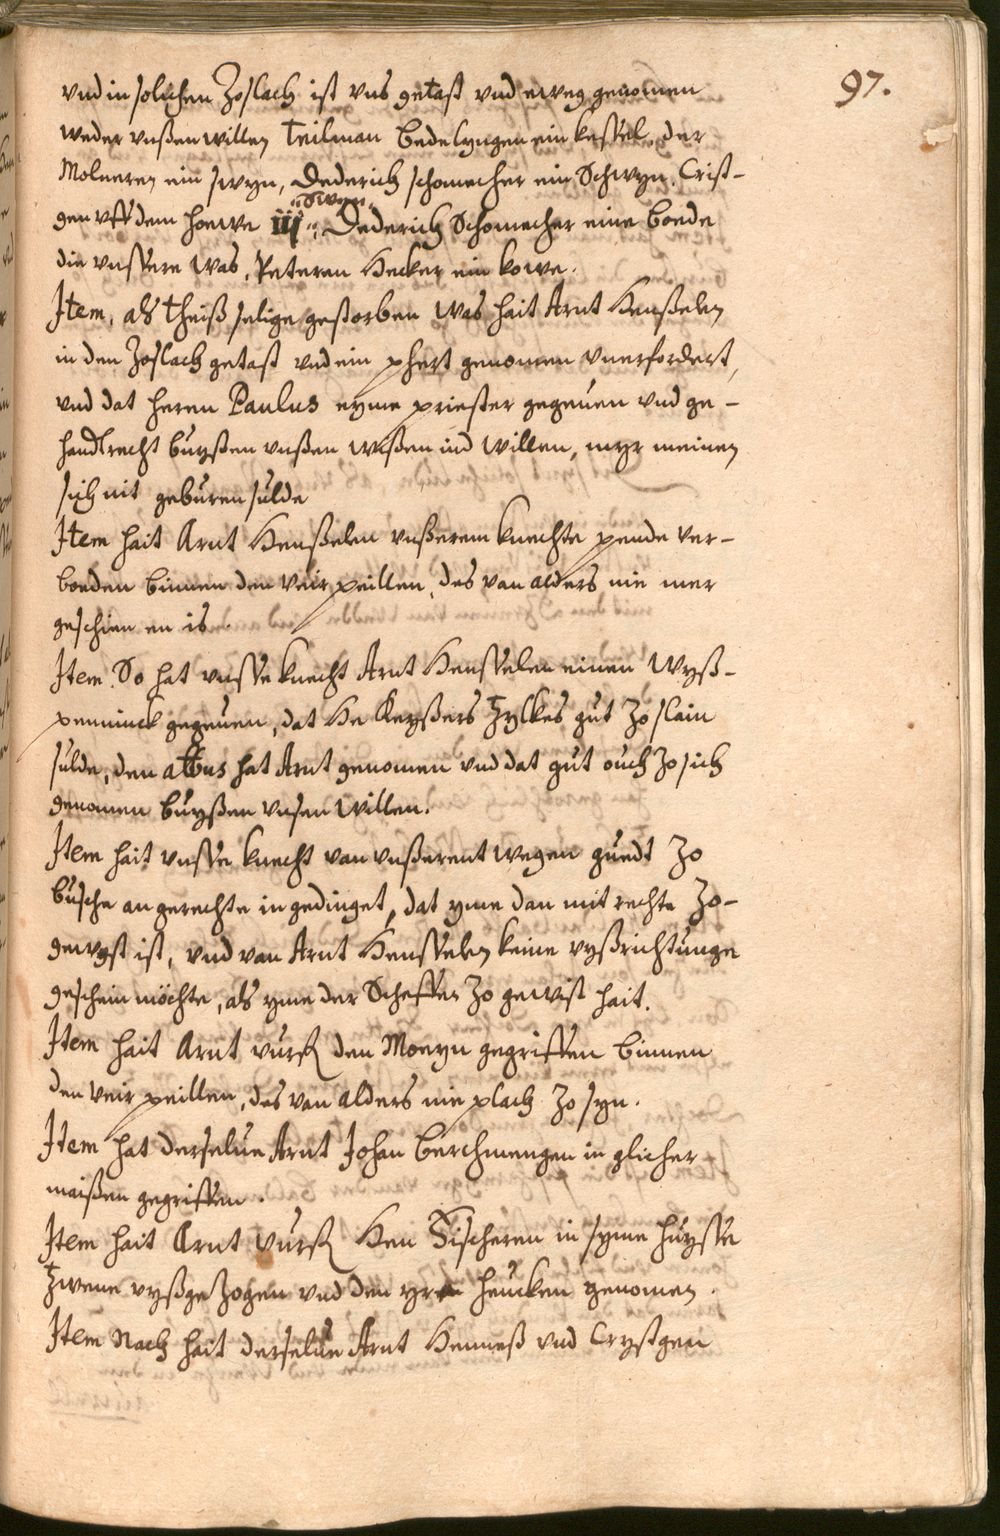 97.
vnd in solichen Zoslach ist vns getast vnd eweg genomen
weder vnßen willen Teilman Bedelyngen ein keßel, der
Molneren ein swyn, Dederich schomecher ein Schwyn, Crist-
gen vff dem hoewe iij „Swyn„, Dederich Schomecher eine boede
die vnssere was, Peteren Hecker ein kowe.
Item, als theiß selige gestorben was hait Arnt Henßelen
in den Zoslach getast vnd ein phert genomen vnerfordert,
vnd dat heren Paulus eyme priester gegeuen vnd ge-
handtrecht buyßen vnßen wißen ind willen, myr meinen
sich nit geburen sulde
Item hait Arnt Henßelen vnßerem knechte pende ver-
boeden binnen den veir peillen, des van alders nie mer
geschien en is.
Item. So hat vnsse knecht Arnt Hensselen einen Wyß-
penninck gegeuen, dat he Keyßers Zylkes gut Zo slain
sulde, den albus hat Arnt genomen vnd dat gut ouch Zo sich
genomen buyßen vnsen willen.
Item hait vnsse knecht van vnßerent wegen guedt Zo
busche an gerechte in gedinget, dat yme dan mit rechte Zo-
gewyst ist, vnd van Arnt Hensselen keine vyßrichtunge
geschein möchte, als yme der Scheffen Zo gewist hait.
Item hait Arnt vurß den Moeyn gegriffen binnen
den veir peillen, des van alders nie plach Zo syn.
Item hat derselue Arnt Johan Berchmengen in glicher
maißen gegriffen.
Item hait Arnt vurß Hen Vischeren in syme huysse
Zwene vyßgeZogen vnd den yren heucken genomen.
Item Nach hait derselue Arnt Henneß vnd Crystgen